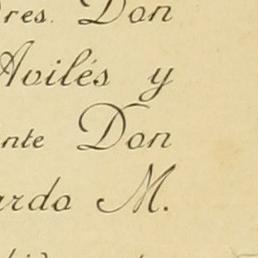 res. Don
Avilés y
nte Don
ardo M.